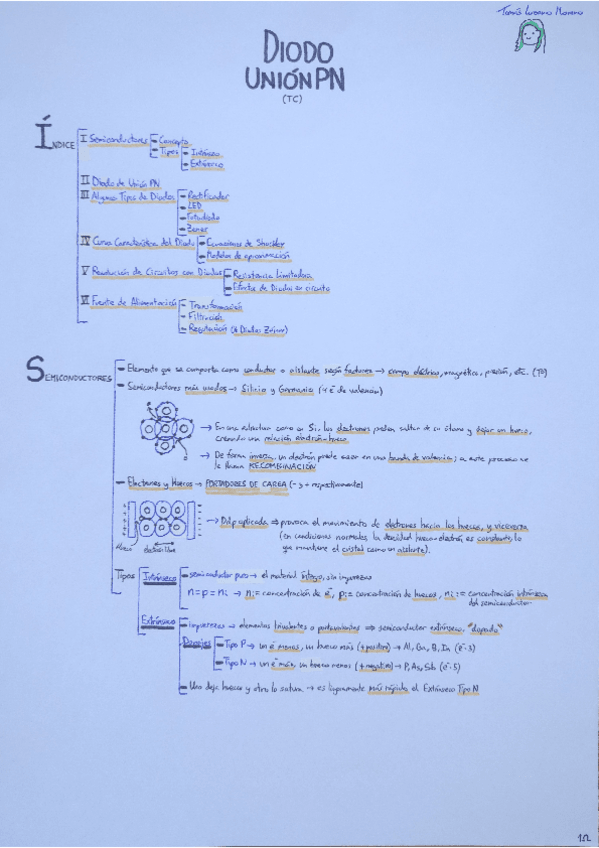 Tomás Lozano Moreno
DIODO
UNIÓN PN
(TC)
ÍNDICE
I Semiconductores
Concepto
Tipos
Intrínseco
Extrínseco
II Diodo de Unión PN
III Algunos Tipos de Diodos
Rectificador
LED
Fotodiodo
Zener
IV Curva Característica del Diodo
Ecuaciones de Shockley
Modelos de aproximación
V Resolución de Circuitos con Diodos
Resistencia Limitadora
Efectos de Diodos en circuito
VI Fuente de Alimentación
Transformación
Filtración
Regulación (* Diodos Zener)
SEMICONDUCTORES
Elemento que se comporta como conductor o aislante según factores → campo eléctrico, magnético, presión, etc. (Tº)
Semiconductores más usados → Silicio y Germanio (4 e⁻ de valencia)
→ En una estructura como su Si, los electrones pueden saltar de su átomo y dejar un hueco,
creando una reacción electrón-hueco.
→ De forma inversa, un electrón puede caer en una banda de valencia; a este proceso se
le llama RECOMBINACIÓN
Electrones y Huecos → PORTADORES DE CARGA (- y + respectivamente)
Hueco
electrón libre
→ Ddp aplicada ⇒ provoca el movimiento de electrones hacia los huecos, y viceversa
(en condiciones normales, la densidad hueco-electrón es constante, lo
que mantiene el cristal como un aislante).
Tipos
Intrínseco
semiconductor puro → el material íntegro, sin impurezas
n = p = ni → n := concentración de e⁻, p := concentración de huecos, ni := concentración intrínseca
del semiconductor
Extrínseco
Impurezas → elementos trivalentes o pentavalentes ⇒ semiconductor extrínseco, "dopado"
Dopajes
Tipo P → un e⁻ menos, un hueco más (+ positivo) → Al, Ga, B, In (e⁻ 3)
Tipo N → un e⁻ más, un hueco menos (+ negativo) → P, As, Sb (e⁻ 5)
Uno deja huecos y otro lo satura → es ligeramente más rápido el Extrínseco Tipo N